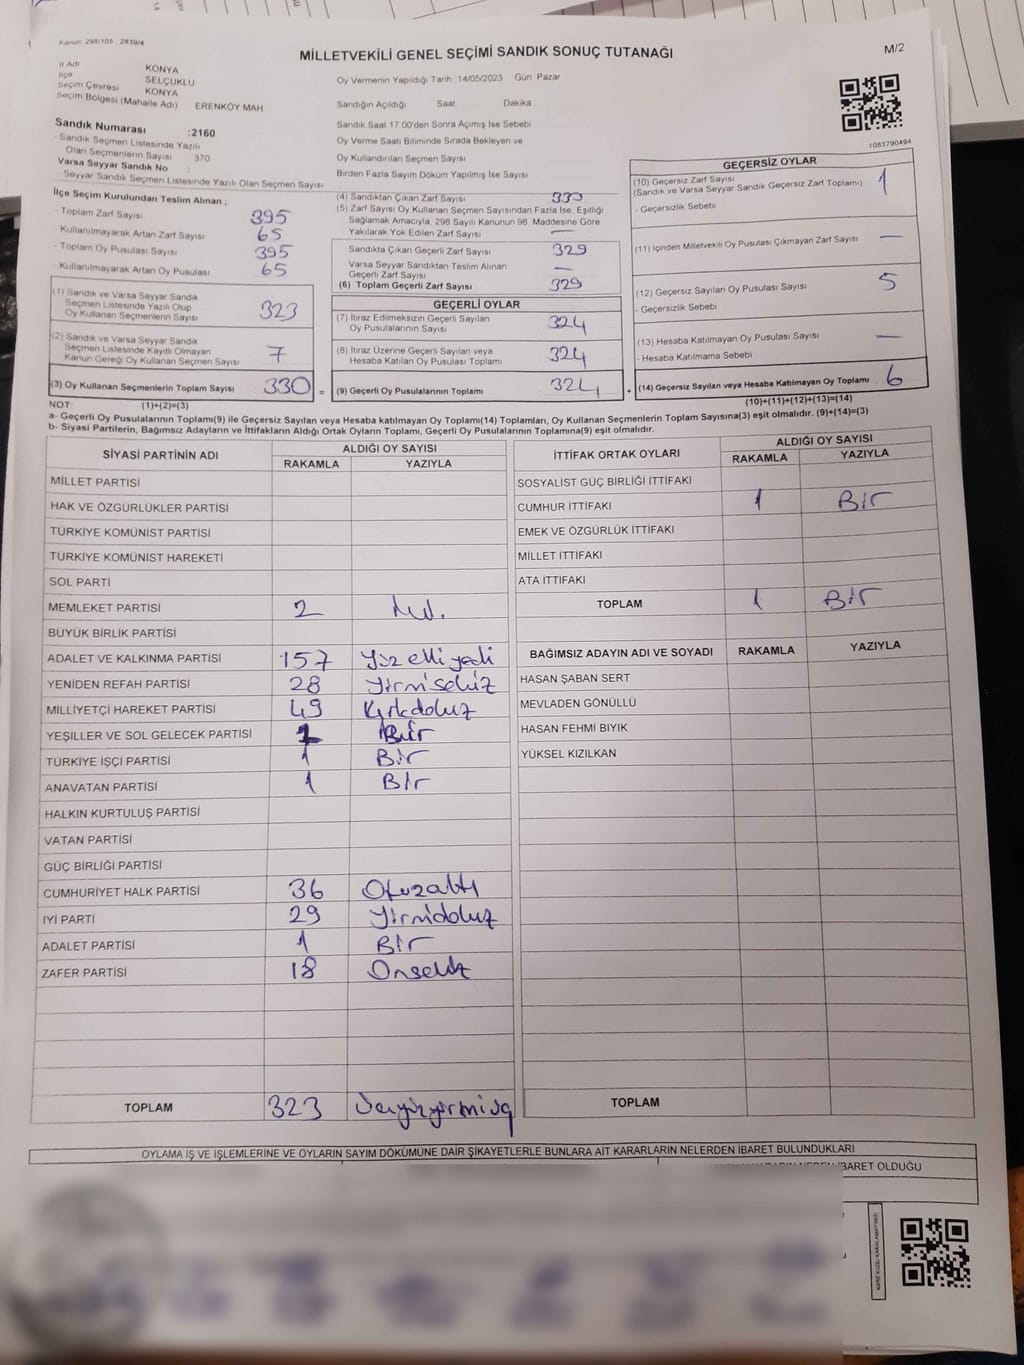 Kanun: 298/105 : 2839/4
M/2
MİLLETVEKİLİ GENEL SEÇİMİ SANDIK SONUÇ TUTANAĞI
İl Adı KONYA
İlçe SELÇUKLU
Seçim Çevresi KONYA
Seçim Bölgesi (Mahalle Adı) ERENKÖY MAH
Sandık Numarası :2160
- Sandık Seçmen Listesinde Yazılı
Olan Seçmenlerin Sayısı 370
Varsa Seyyar Sandık No :
- Seyyar Sandık Seçmen Listesinde Yazılı Olan Seçmen Sayısı
Oy Vermenin Yapıldığı Tarih 14/05/2023 Gün Pazar
Sandığın Açıldığı Saat Dakika
Sandık Saat 17.00'den Sonra Açılmış İse Sebebi
Oy Verme Saati Bitiminde Sırada Bekleyen ve
Oy Kullandırılan Seçmen Sayısı
Birden Fazla Sayım Döküm Yapılmış İse Sayısı
1083790494
İlçe Seçim Kurulundan Teslim Alınan ;
- Toplam Zarf Sayısı 395
- Kullanılmayarak Artan Zarf Sayısı 65
- Toplam Oy Pusulası Sayısı 395
- Kullanılmayarak Artan Oy Pusulası 65
(1) Sandık ve Varsa Seyyar Sandık
Seçmen Listesinde Yazılı Olup
Oy Kullanan Seçmenlerin Sayısı 323
(2) Sandık ve Varsa Seyyar Sandık
Seçmen Listesinde Kayıtlı Olmayan
Kanun Gereği Oy Kullanan Seçmen Sayısı 7
(3) Oy Kullanan Seçmenlerin Toplam Sayısı 330 =
(4) Sandıktan Çıkan Zarf Sayısı 330
(5) Zarf Sayısı Oy Kullanan Seçmen Sayısından Fazla İse, Eşitliği
Sağlamak Amacıyla, 298 Sayılı Kanunun 98. Maddesine Göre
Yakılarak Yok Edilen Zarf Sayısı —
Sandıkta Çıkan Geçerli Zarf Sayısı 329
Varsa Seyyar Sandıktan Teslim Alınan
Geçerli Zarf Sayısı —
(6) Toplam Geçerli Zarf Sayısı 329
GEÇERLİ OYLAR
(7) İtiraz Edilmeksizin Geçerli Sayılan
Oy Pusulalarının Sayısı 324
(8) İtiraz Üzerine Geçerli Sayılan veya
Hesaba Katılan Oy Pusulası Toplamı 324
(9) Geçerli Oy Pusulalarının Toplamı 324 +
GEÇERSİZ OYLAR
(10) Geçersiz Zarf Sayısı 1
(Sandık ve Varsa Seyyar Sandık Geçersiz Zarf Toplamı)
- Geçersizlik Sebebi
(11) İçinden Milletvekili Oy Pusulası Çıkmayan Zarf Sayısı —
(12) Geçersiz Sayılan Oy Pusulası Sayısı 5
- Geçersizlik Sebebi
(13) Hesaba Katılmayan Oy Pusulası Sayısı —
- Hesaba Katılmama Sebebi
(14) Geçersiz Sayılan veya Hesaba Katılmayan Oy Toplamı 6
NOT: (1)+(2)=(3) (10)+(11)+(12)+(13)=(14)
a- Geçerli Oy Pusulalarının Toplamı(9) ile Geçersiz Sayılan veya Hesaba katılmayan Oy Toplamı(14) Toplamları, Oy Kullanan Seçmenlerin Toplam Sayısına(3) eşit olmalıdır. (9)+(14)=(3)
b- Siyasi Partilerin, Bağımsız Adayların ve İttifakların Aldığı Ortak Oyların Toplamı, Geçerli Oy Pusulalarının Toplamına(9) eşit olmalıdır.
SİYASİ PARTİNİN ADI ALDIĞI OY SAYISI
RAKAMLA YAZIYLA
MİLLET PARTİSİ
HAK VE ÖZGÜRLÜKLER PARTİSİ
TÜRKİYE KOMÜNİST PARTİSİ
TÜRKİYE KOMÜNİST HAREKETİ
SOL PARTİ
MEMLEKET PARTİSİ 2
BÜYÜK BİRLİK PARTİSİ
ADALET VE KALKINMA PARTİSİ 157 Yüzelliyedi
YENİDEN REFAH PARTİSİ 28 Yirmisekiz
MİLLİYETÇİ HAREKET PARTİSİ 49 Kırkdokuz
YEŞİLLER VE SOL GELECEK PARTİSİ 1 Bir
TÜRKİYE İŞÇİ PARTİSİ 1 Bir
ANAVATAN PARTİSİ 1 Bir
HALKIN KURTULUŞ PARTİSİ
VATAN PARTİSİ
GÜÇ BİRLİĞİ PARTİSİ
CUMHURİYET HALK PARTİSİ 36 Otuzaltı
İYİ PARTİ 29 Yirmidokuz
ADALET PARTİSİ 1 Bir
ZAFER PARTİSİ 18 Onsekiz
TOPLAM 323 Üçyüzyirmiüç
İTTİFAK ORTAK OYLARI ALDIĞI OY SAYISI
RAKAMLA YAZIYLA
SOSYALİST GÜÇ BİRLİĞİ İTTİFAKI
CUMHUR İTTİFAKI 1 Bir
EMEK VE ÖZGÜRLÜK İTTİFAKI
MİLLET İTTİFAKI
ATA İTTİFAKI
TOPLAM 1 Bir
BAĞIMSIZ ADAYIN ADI VE SOYADI RAKAMLA YAZIYLA
HASAN ŞABAN SERT
MEVLADEN GÖNÜLLÜ
HASAN FEHMİ BIYIK
YÜKSEL KIZILKAN
TOPLAM
OYLAMA İŞ VE İŞLEMLERİNE VE OYLARIN SAYIM DÖKÜMÜNE DAİR ŞİKAYETLERLE BUNLARA AİT KARARLARIN NELERDEN İBARET BULUNDUKLARI
İBARET OLDUĞU